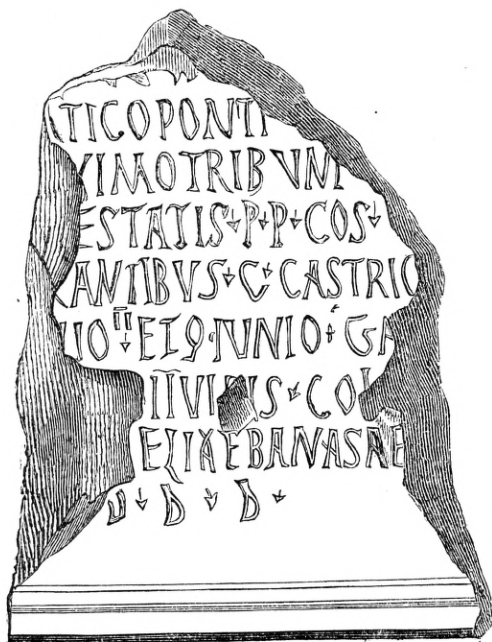 TICO PONTI
XIMO TRIBVNI
ESTATIS · P · P · COS ·
RANTIBVS · C · CASTRIC
IIO II · ET Q · IVNIO · GA
IIVIRIS · COL
ELIXE BANASAE
D · D · D ·